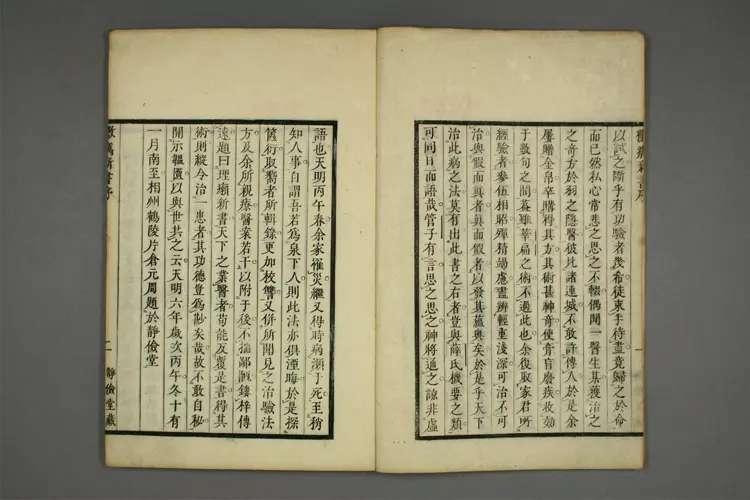 黴癘新書序
以試之際乎有功驗者幾希徒束手待盡竟歸之於命
而已然私心常悲之思之不輟偶聞一醫生某獲治之
之奇方於羽之隱醫彼此諸連城不敢許傳人於是余
屢贈金帛卒購得其方其術甚神奇使育肓廢疾收効
于數旬之間蓋雖華扁之術不過此也余復取家君所
經驗者參伍相照殫精竭慮晝辨輕重淺深可治不可
治與假而真者真而假者以發其蘊奧矣於是乎天下
治此病之法莫有出此書之右者豈與薛氏機要之類
可同日而語哉管子有言思之思之神將通之諒非虛
一
語也天明丙午春余家罹災繼又得時病瀕于死至稍
知人事自謂吾若為泉下人則此法亦俱湮晦於是探
篋衍取嚮者所輯錄更加校讐又併所聞見之治驗法
方及余所親療醫案若干以附于後不揣鄙陋鏤梓傳
遠題曰理癘新書天下之業醫者苟能反覆是書得其
術則縱令治一患者其功德豈為尠矣哉故不敢自秘
開示韞匱以與世共之云天明六年歲次丙午冬十有
一月南至相州鶴陵片倉元周題於靜儉堂
二
靜儉堂藏